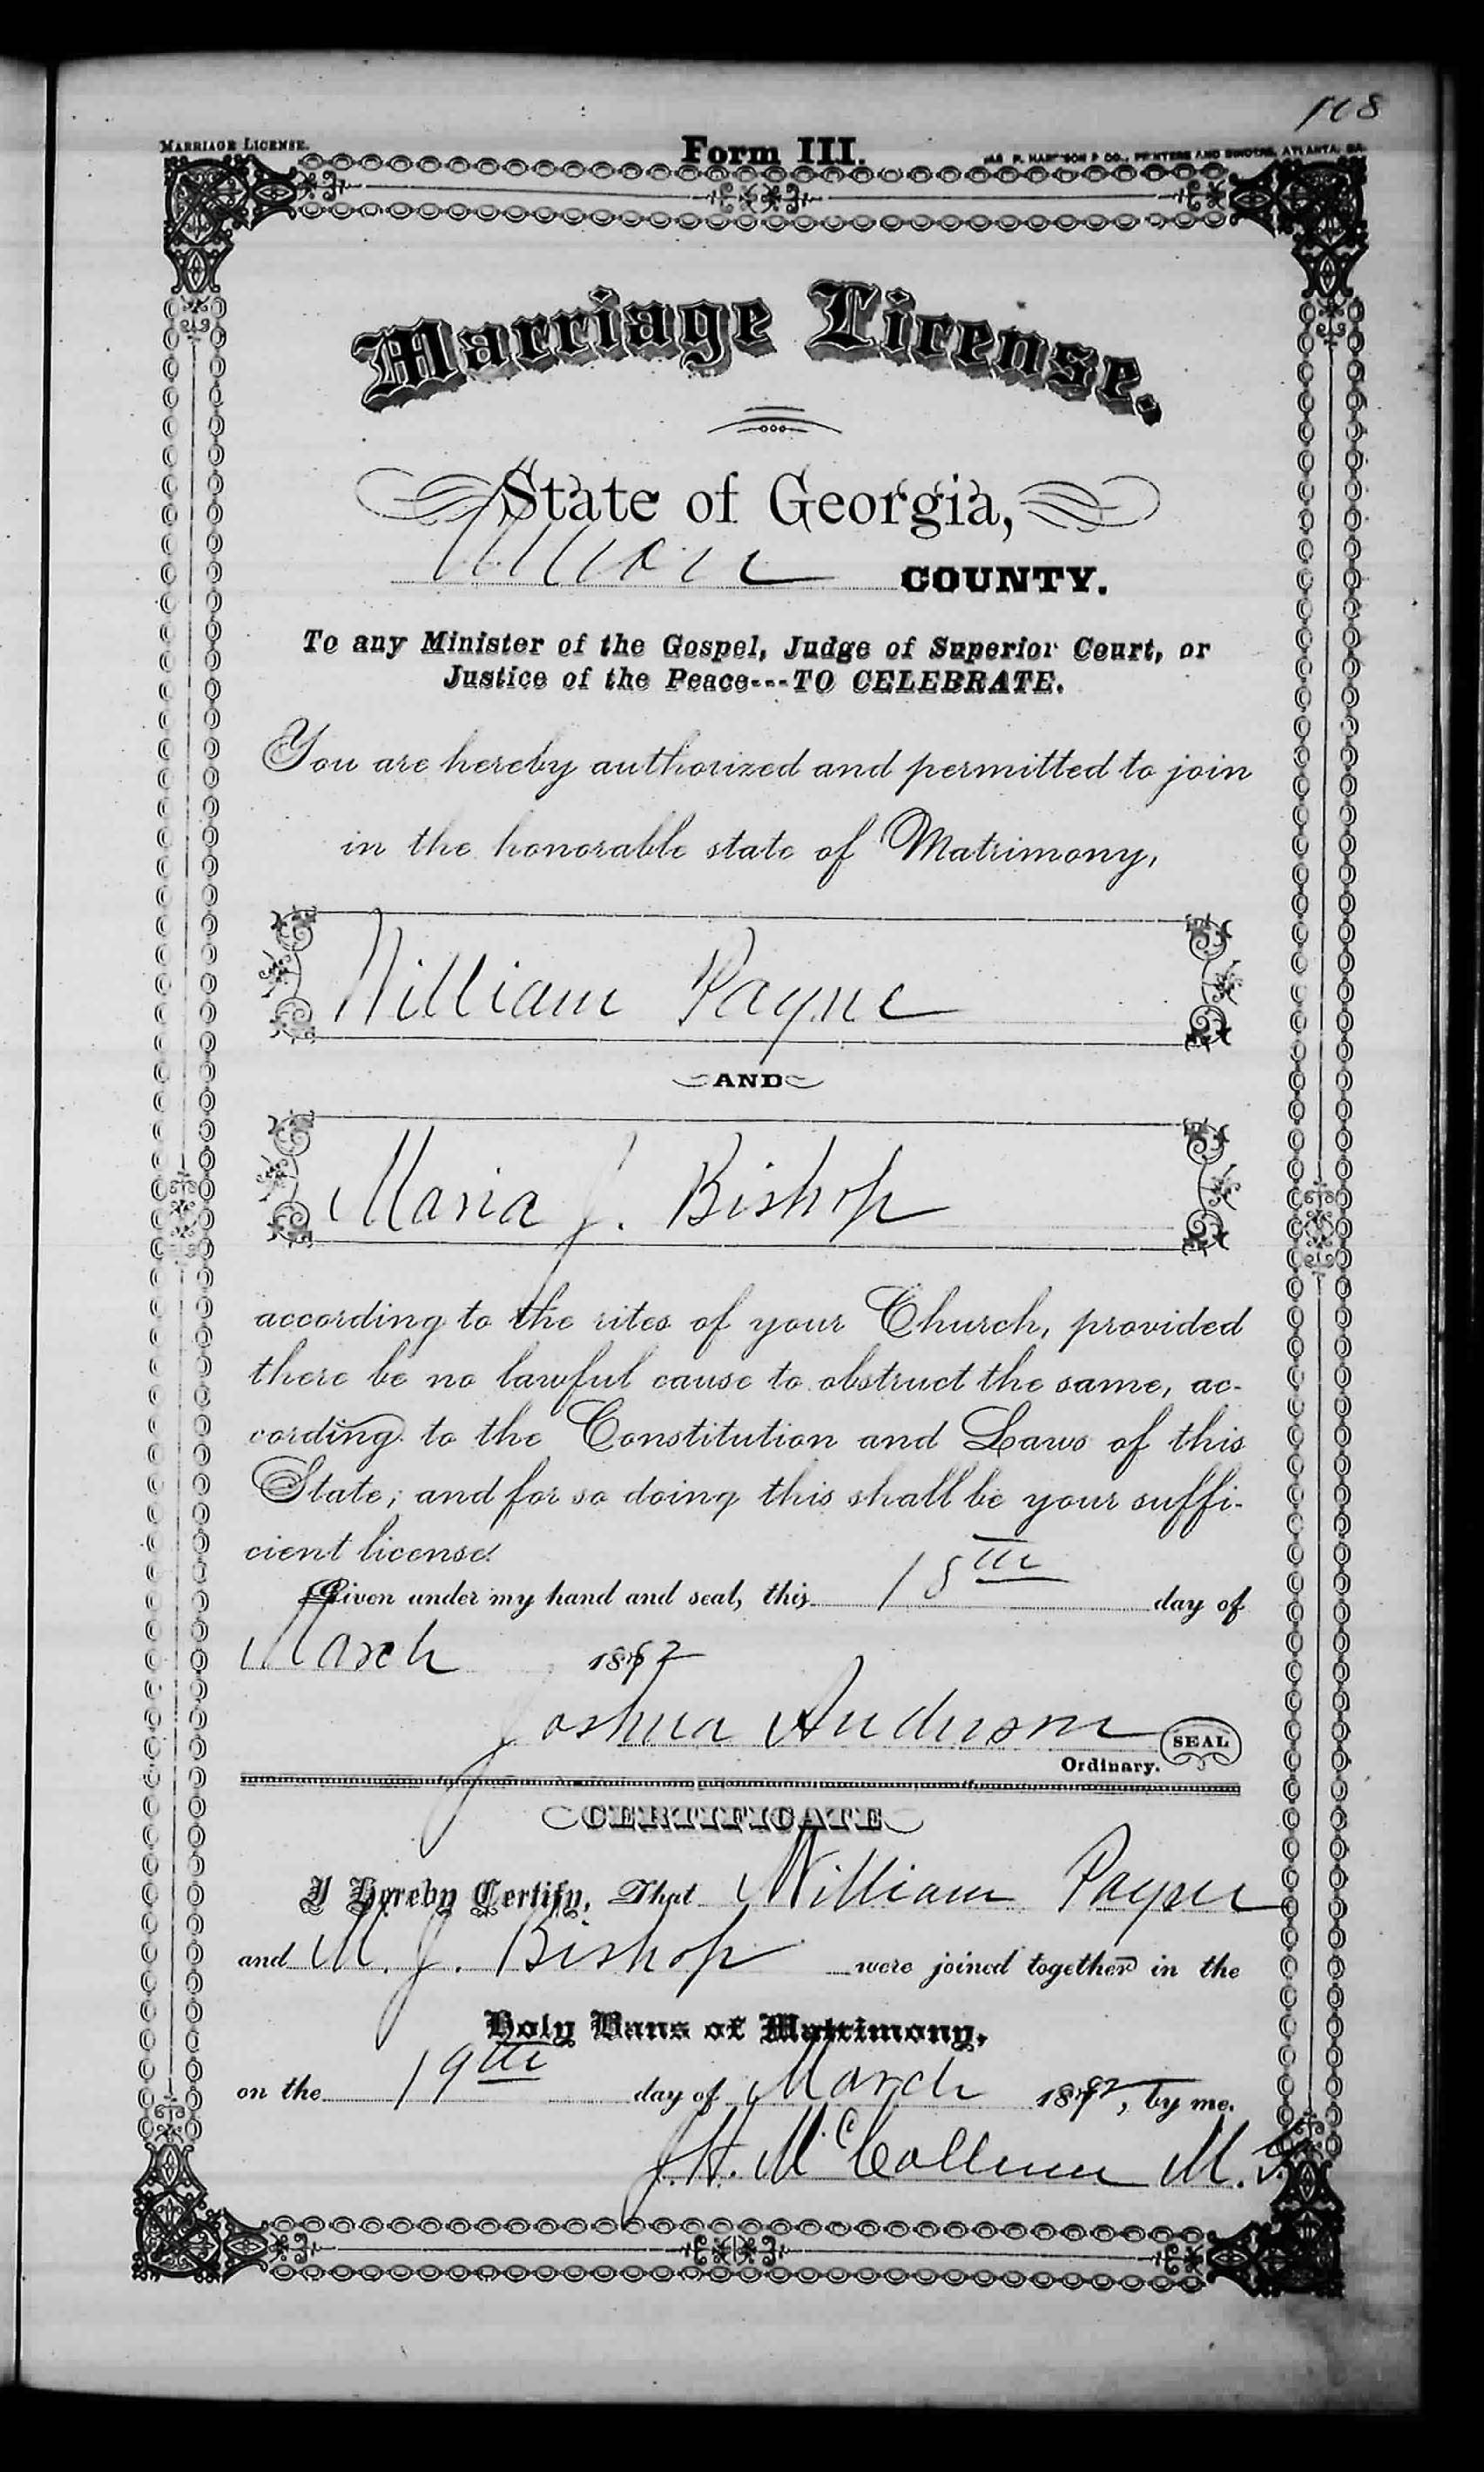 108
MARRIAGE LICENSE.
Form III.
JAS. P. HARRISON & CO., PRINTERS AND BINDERS, ATLANTA, GA.
Marriage License.
State of Georgia,
COUNTY.
To any Minister of the Gospel, Judge of Superior Court, or
Justice of the Peace---TO CELEBRATE.
You are hereby authorized and permitted to join
in the honorable state of Matrimony,
William Payne
AND
Maria J. Bishop
according to the rites of your Church, provided
there be no lawful cause to obstruct the same, ac-
cording to the Constitution and Laws of this
State; and for so doing this shall be your suffi-
cient license.
Given under my hand and seal, this 18th day of
March 1882
Joshua Anderson SEAL
Ordinary.
CERTIFICATE
I Hereby Certify, That William Payne
and M. J. Bishop were joined together in the
Holy Bans of Matrimony,
on the 19th day of March 1882, by me.
J. H. McCollum M. G.